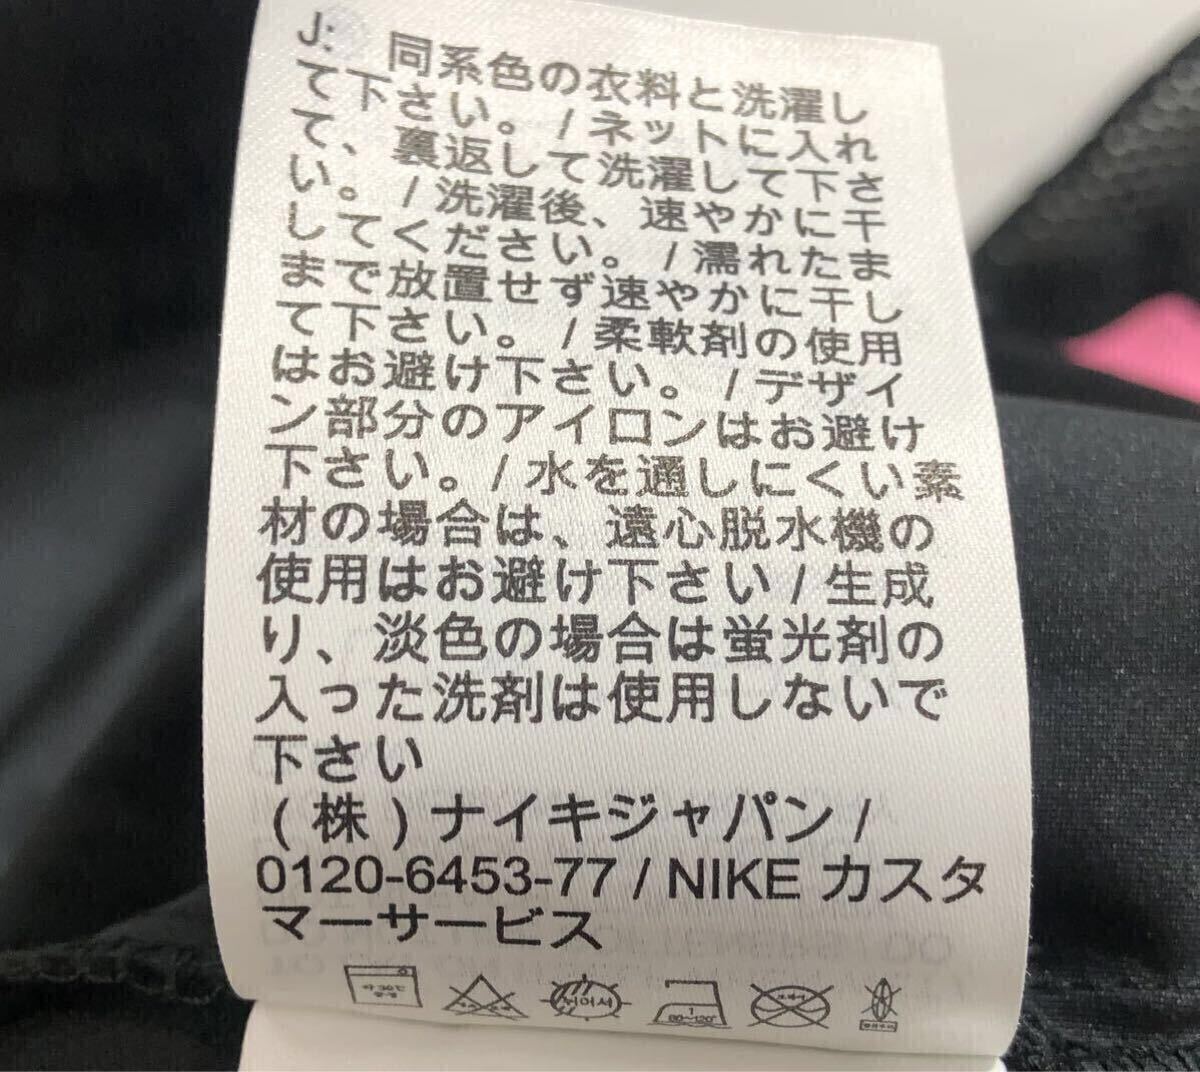 J: 同系色の衣料と洗濯し
て下さい。/ ネットに入れ
て、裏返して洗濯して下さ
い。/ 洗濯後、速やかに干
してください。/ 濡れたま
まで放置せず速やかに干し
て下さい。/ 柔軟剤の使用
はお避け下さい。/ デザイ
ン部分のアイロンはお避け
下さい。/ 水を通しにくい素
材の場合は、遠心脱水機の
使用はお避け下さい / 生成
り、淡色の場合は蛍光剤の
入った洗剤は使用しないで
下さい
(株) ナイキジャパン /
0120-6453-77 / NIKE カスタ
マーサービス
약 30℃ 뉘어서 1
80~120℃